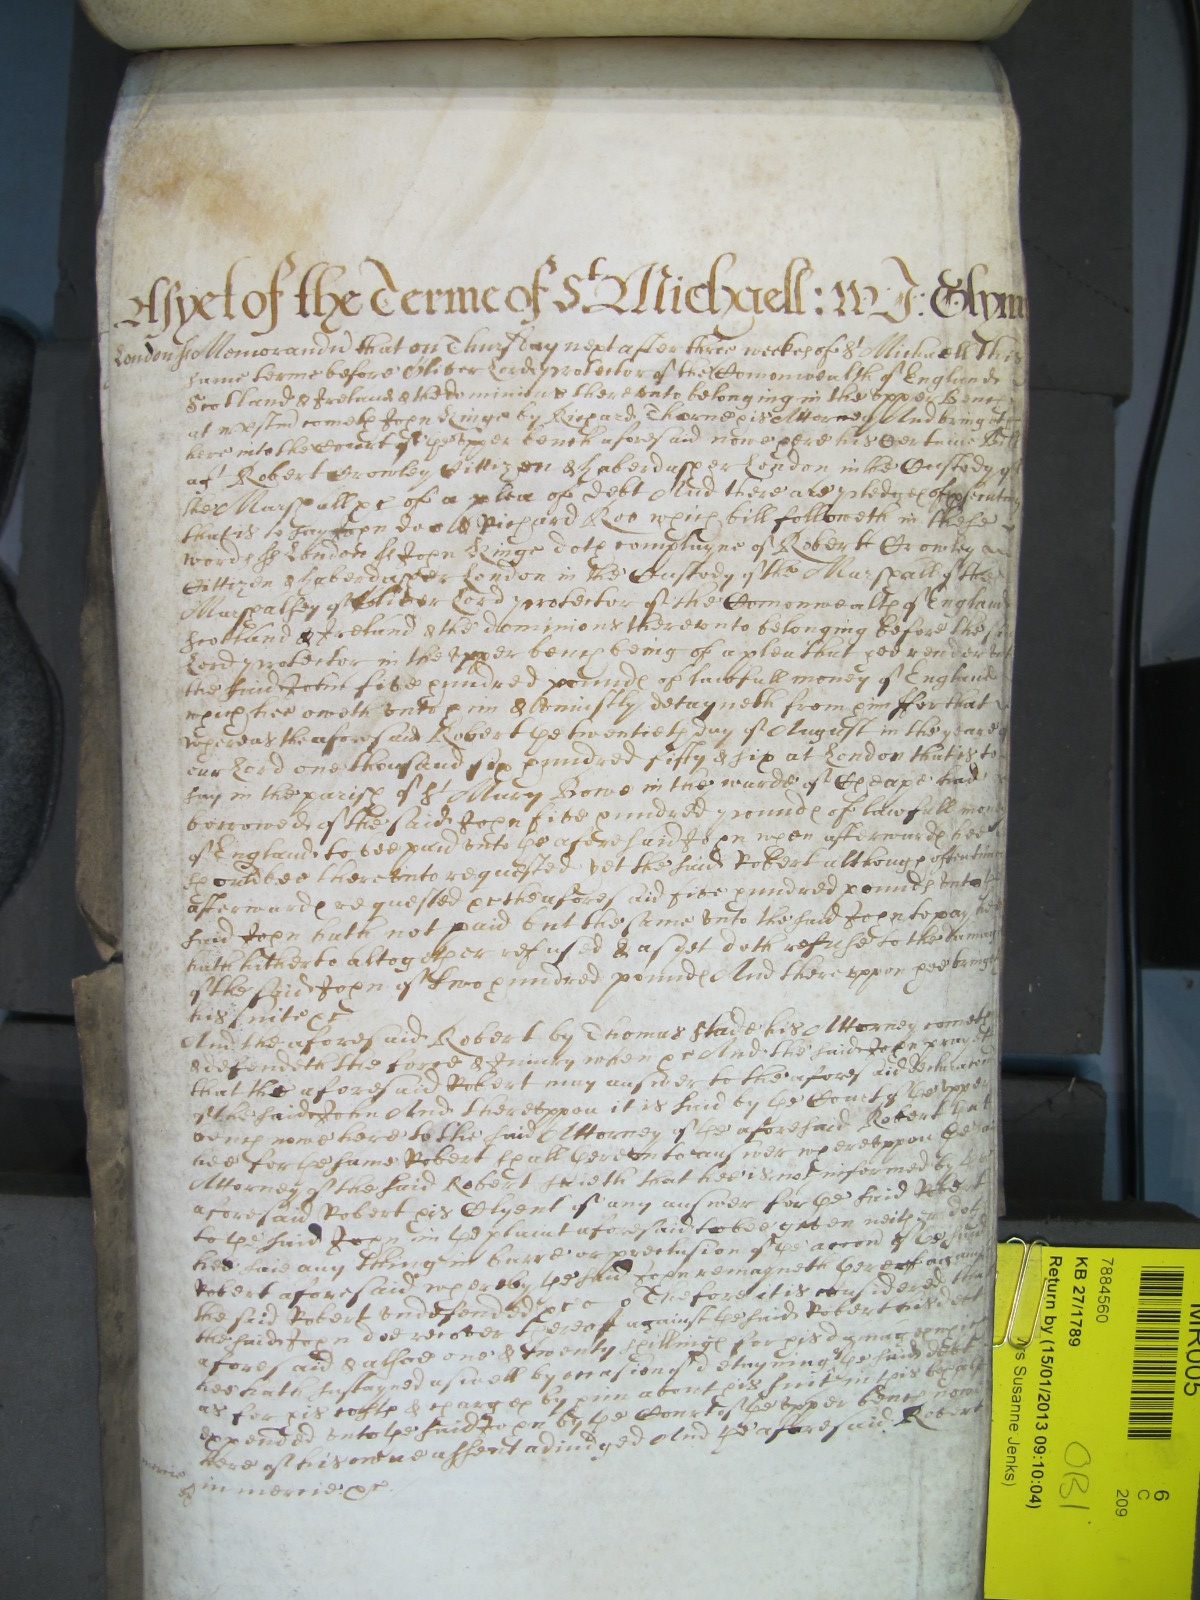 As yet of the Terme of St Michaell: W J: Glynn
London ss Memorandu that on Thursday next after three weekes of St Michaell this
same terme before Oliver Lord Protector of the Comonwealth of England
Scotland & Ireland & the dominions thereunto belonging in the Upper Bench
at Westmr cometh John Kinge by Richard Thorne his Attorney And bringeth
here into the Court of the Upper bench aforesaid nowe here his Certaine Bill
agt Robert Crowley Cittizen & haberdasher London in the Custody of
the Marshall &c of a plea of debt And there are pledges of prosecuting
that is to say John doe & Richard Roe which bill followeth in these
words ss London ss John Kinge doth complayne of Robert Crowley
Cittizen & haberdasher London in the Custody of the Marshall of the
Marshalsey of Oliver Lord protector of the Comonwealth of England
Scotland & Ireland & the dominions thereunto belonging before the said
Lord protector in the Upper bench being of a plea that hee render unto
the said John five hundred pounds of lawfull money of England
which hee oweth unto him & uniustly detayneth from him ffor that
whereas the aforesaid Robert the twentieth day of August in the yeare of
our Lord one thousand six hundred fifty & six at London that is to
say in the parish of St Mary Bowe in the warde of Cheape had
borrowed of the said John five hundred pounds of lawfull money
of England to bee paid unto the aforesaid John when afterwards hee
should bee thereunto requested yet the said Robert although oftentimes
afterwards requested &c the aforesaid five hundred pounds unto the
said John hath not paid but the same unto the said John to pay hee
hath hitherto altogether refused & as yet doth refuse to the damage
of the said John of two hundred pounds And thereuppon hee bringeth
his suite &c
And the aforesaid Robert by Thomas Slade his Attorney cometh
& defendeth the force & Iniury when &c And the said John prayeth
that the aforesaid Robert may answer to the aforesaid declaration
of the said John And thereuppon it is said by the Court of the Upper
bench nowe here to the said Attorney of the aforesaid Robert that
hee for the same Robert shall thereunto answer whereuppon the said
Attorney of the said Robert saieth that hee is not informed by the
aforesaid Robert his Clyent of any answer for the said Robert
to the said John in the plaint aforesaid to bee given neither doth
hee saie any thing in barre or preclusion of the accon of the said
Robert aforesaid whereby the said John remayneth thereof against
the said Robert undefended &c Therefore it is considered that
the said John doe recover thereof against the said Robert his debt
aforesaid & alsoe one & twenty shillings for his damages which
hee hath sustayned aswell by occasion of detayning the said debt
as for his costs & charges by him about his suite in this behalf
expended unto the said John by the Court of the Upper bench nowe
here of his owne assent adiudged And the aforesaid Robert
mercie
in mercie &c
MR005
7884560
KB 27/1789
Return by (15/01/2013 09:10:04)
Susanne Jenks)
6
C
209
OB1